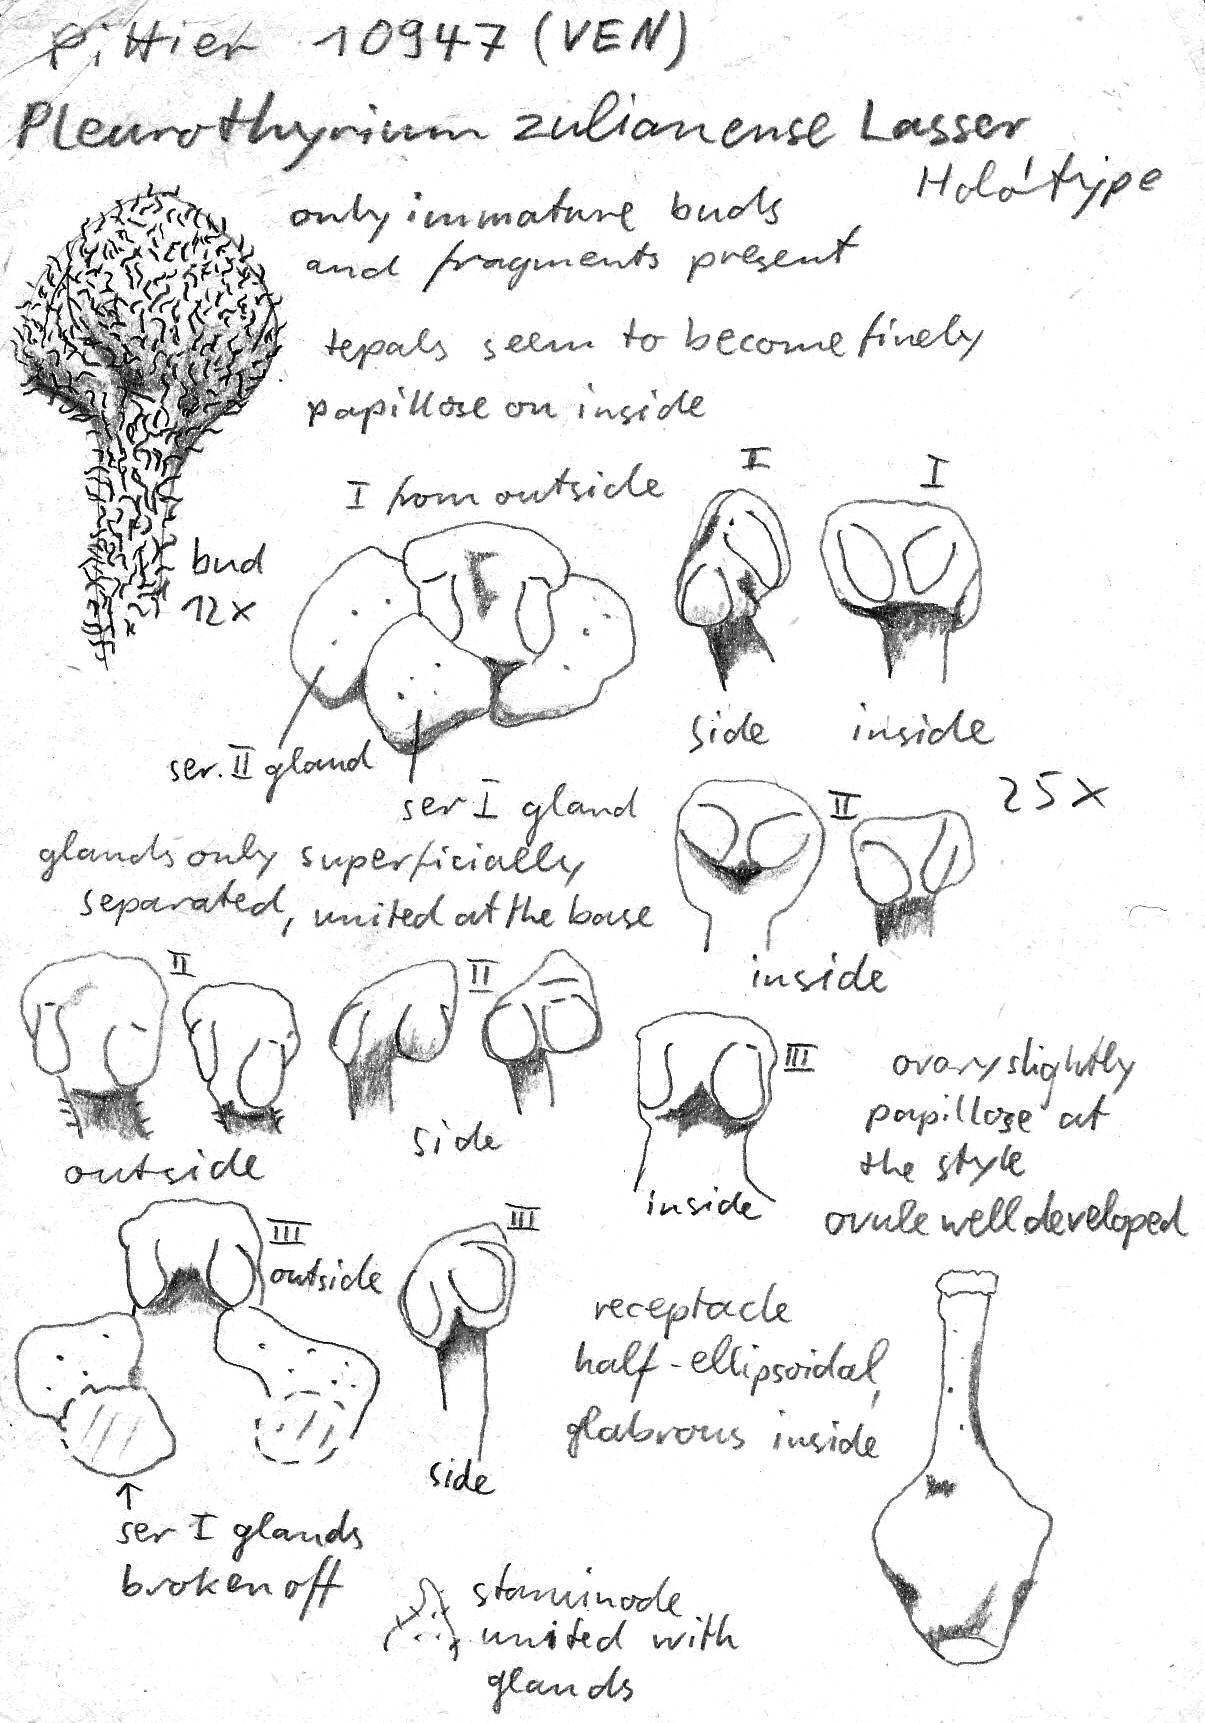 Pittier 10947 (VEN)
Pleurothyrium zulianense Lasser
Holotype
only immature buds
and fragments present
tepals seem to become finely
papillose on inside
bud
12x
I from outside
I
I
side
inside
ser. II gland
ser I gland
25x
glands only superficially
separated, united at the base
II
inside
II
outside
II
side
III
inside
ovary slightly
papillose at
the style
ovule well developed
III
outside
III
side
receptacle
half-ellipsoidal,
glabrous inside
↑
ser I glands
broken off
staminode
united with
glands